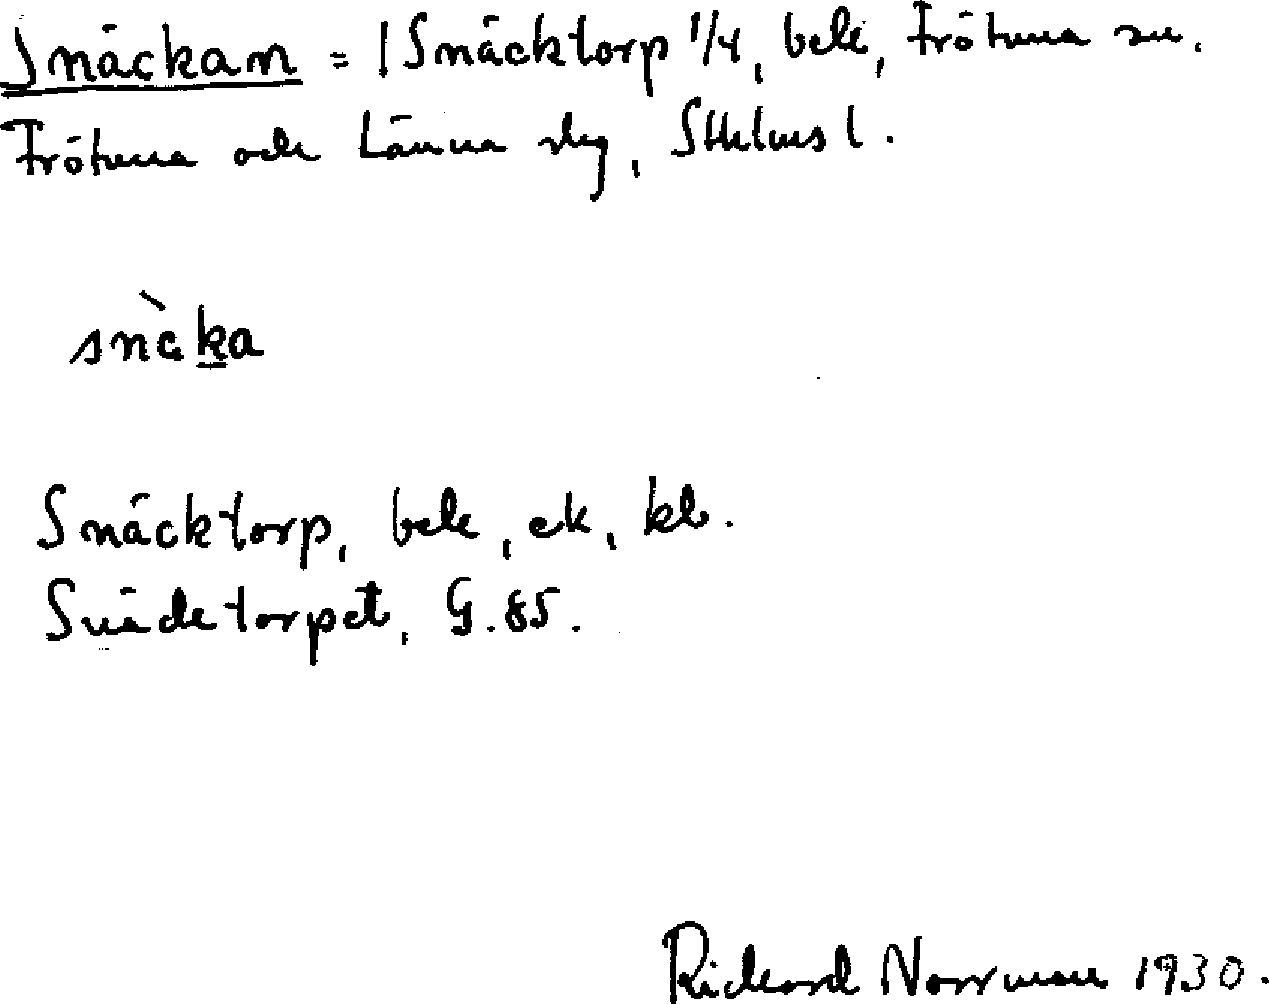 Snäckan = | Snäcktorp 1/4, bek, Frötuna sn.
Frötuna och Länna slg, Sthlms l.
snàka
Snäcktorp, bek, ek, kb.
Snäcketorpet, G. 85.
Rickard Norrman 1930.